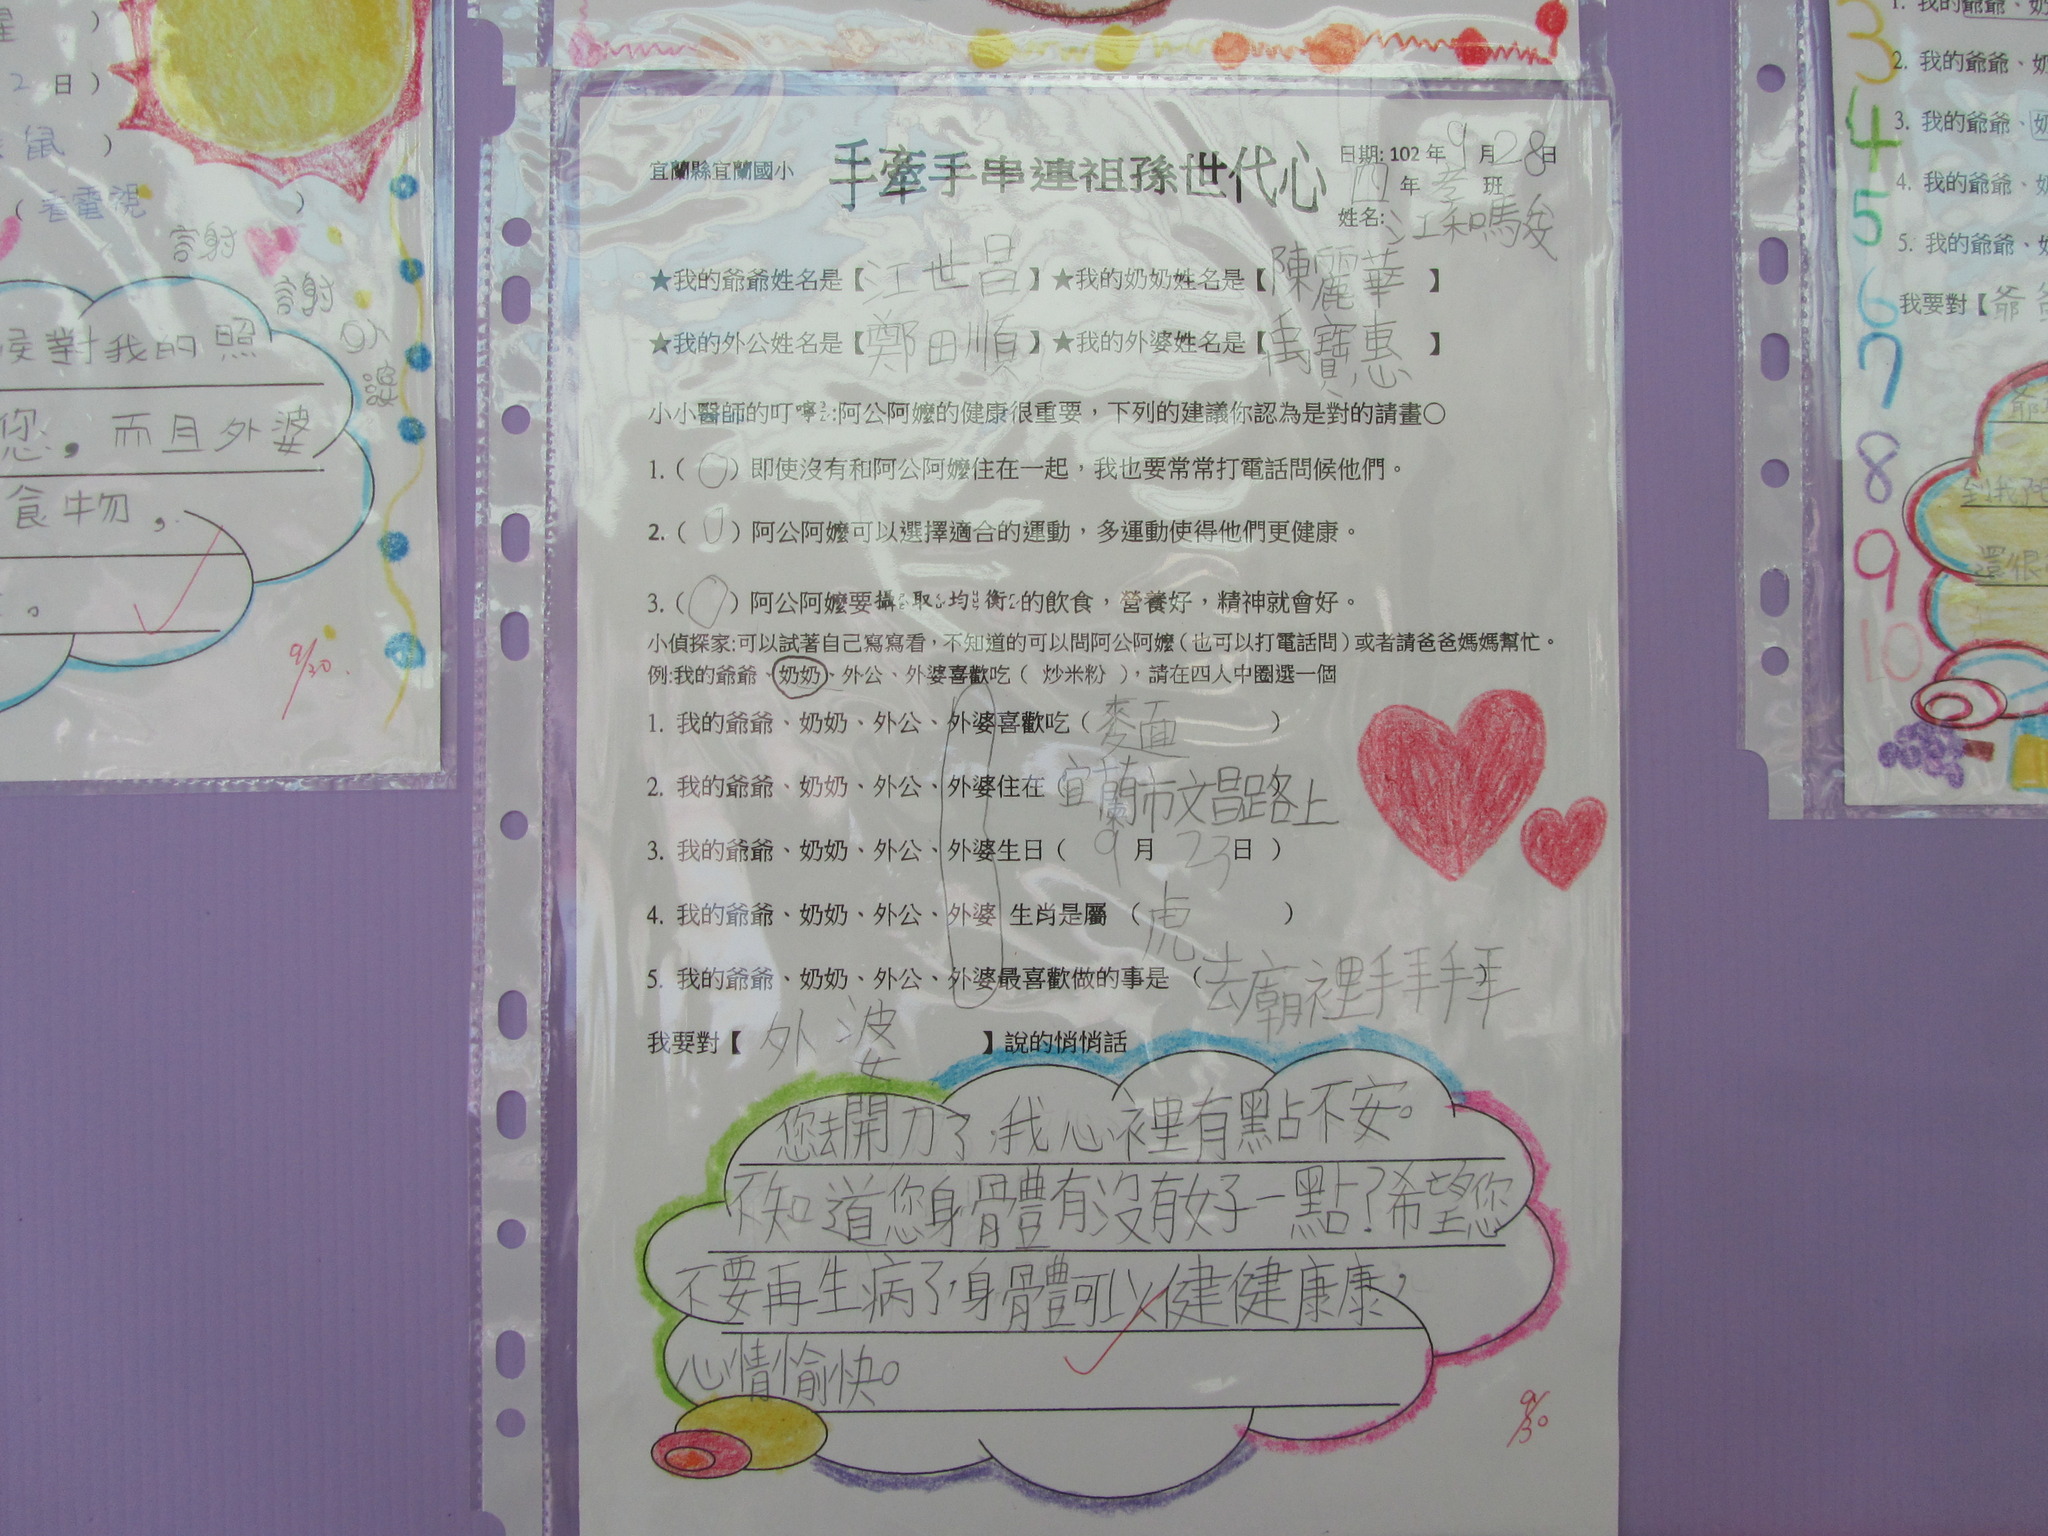 宜蘭縣宜蘭國小
手牽手串連祖孫世代心
日期: 102 年 9 月 28 日
四 年 孝 班
姓名:
★我的爺爺姓名是【江世昌】★我的奶奶姓名是【陳麗華】
★我的外公姓名是【鄭田順】★我的外婆姓名是【禹寶惠】
小小醫師的叮嚀:阿公阿嬤的健康很重要，下列的建議你認為是對的請畫○
1.(○)即使沒有和阿公阿嬤住在一起，我也要常常打電話問候他們。
2.(○)阿公阿嬤可以選擇適合的運動，多運動使得他們更健康。
3.(○)阿公阿嬤要攝取均衡的飲食，營養好，精神就會好。
小偵探家:可以試著自己寫寫看，不知道的可以問阿公阿嬤(也可以打電話問)或者請爸爸媽媽幫忙。
例:我的爺爺、奶奶、外公、外婆喜歡吃( 炒米粉 )，請在四人中圈選一個
1. 我的爺爺、奶奶、外公、外婆喜歡吃(麵)
2. 我的爺爺、奶奶、外公、外婆住在 宜蘭市文昌路上
3. 我的爺爺、奶奶、外公、外婆生日( 9 月 23 日 )
4. 我的爺爺、奶奶、外公、外婆 生肖是屬 (虎)
5. 我的爺爺、奶奶、外公、外婆最喜歡做的事是 (去廟裡拜拜)
我要對【 外婆 】說的悄悄話
您去開刀了,我心裡有點不安。
不知道您身體有沒有好一點?希望您
不要再生病了,身體可以健健康康，
心情愉快。
9/30
2 日 )
鼠 )
( 看電視 )
謝
謝
對我的照
您，而且外婆
食物，
。
9/30
1. 我的爺爺、奶
2. 我的爺爺、奶
3. 我的爺爺、奶
4. 我的爺爺、奶
5. 我的爺爺、奶
我要對【爺
3
4
5
6
7
8
9
10
到我
還很